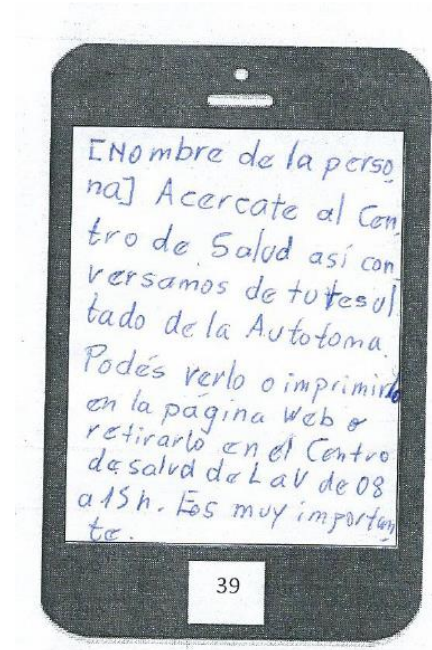 [Nombre de la perso
na] Acercate al Cen
tro de Salud así con
versamos de tu resul
tado de la Autotoma.
Podés verlo o imprimirlo
en la página Web o
retirarlo en el Centro
de salud de L a V de 08
a 15 h. Es muy importan
te.
39